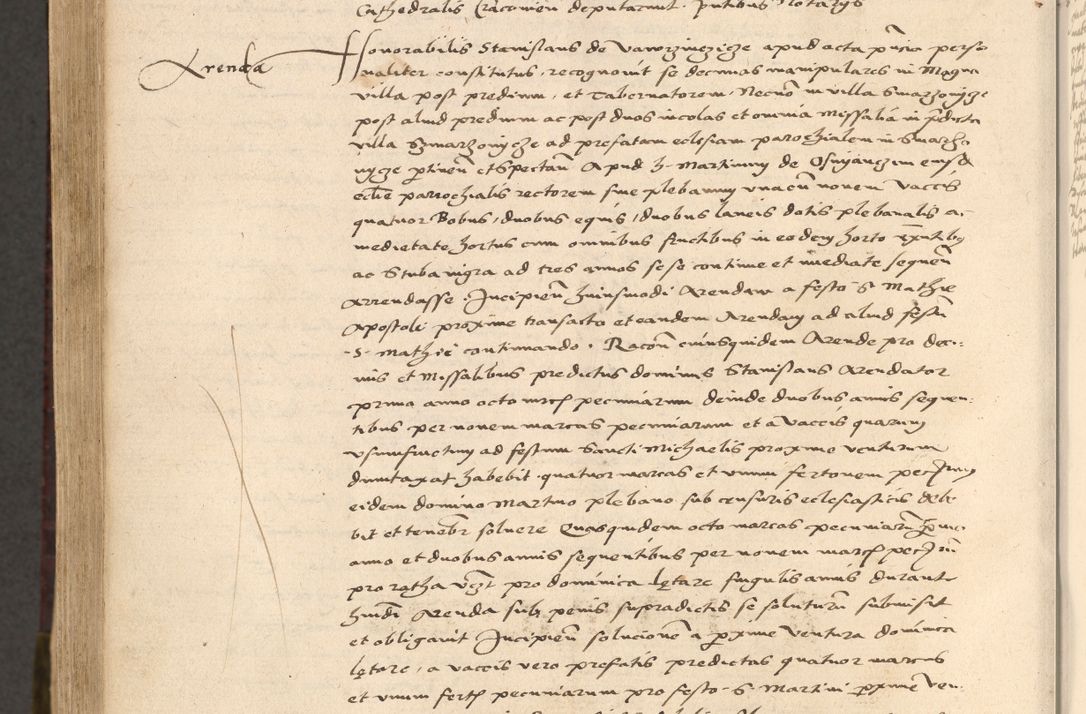 Cathedralis Cracovien deputarunt. pntibus Notarijs
Arenda
Honorabilis Stanislaus de apud acta pnia perso
naliter constitutus, recognovit se decimas manipulares in Magna
villa post predium, et Tabernatorem, Necnon in villa Smarzonycze
post aliud predium ac post duos incolas et omnia Missalia in predicta
villa Szmarzonycze ad prefatam eclesiam parochialem in Smarzo
nycze pertinen et Spectan Apud h. Martinum de Osnyanczim eiusd
eclie parrochialis rectorem sive plebanum unacum novem vaccis
quatuor Bobus, duobus equis, duobus laneis dotis plebanalis ac
medietate hortus cum omnibus fructibus in eodem horto
ac Stuba nigra ad tres annos sese continue et imediate sequen
Arrendasse. Incipien huiusmodi Arendam a festo S. Mathie
Apostoli proxime transacto et eandem Arendam ad aliud festum
S. Mathie continuando. Racon cuiusquidem Arende pro deci:
mis et Missalibus predictus dominus Stanislaus Arendator
primo anno octo mrcs pecuniarum deinde duobus annis sequen:
tibus per novem marcas pecuniarum et a vaccis quarum
usumfructum ad festum Sancti Michaelis proxime venturum
dumtaxat habebit quatuor marcas et unum fertonem pecuniarum
eidem domino Martino plebano sub censuris eclesiasticis debe
bit et tenebr solvere Quasquidem octo marcas pecuniarum primo
anno et duobus annis sequentibus per novem marcas
pro ratha pro dominica lętare singulis annis durante
hmodi Arenda sub penis supradictis se soluturum submisit
et obligavit Incipien solucionem a proxime ventura dominica
lętare, a vaccis vero prefatis predictas quatuor marcas
et unum fertonem pecuniarum pro festo S. Martini proxime ven: